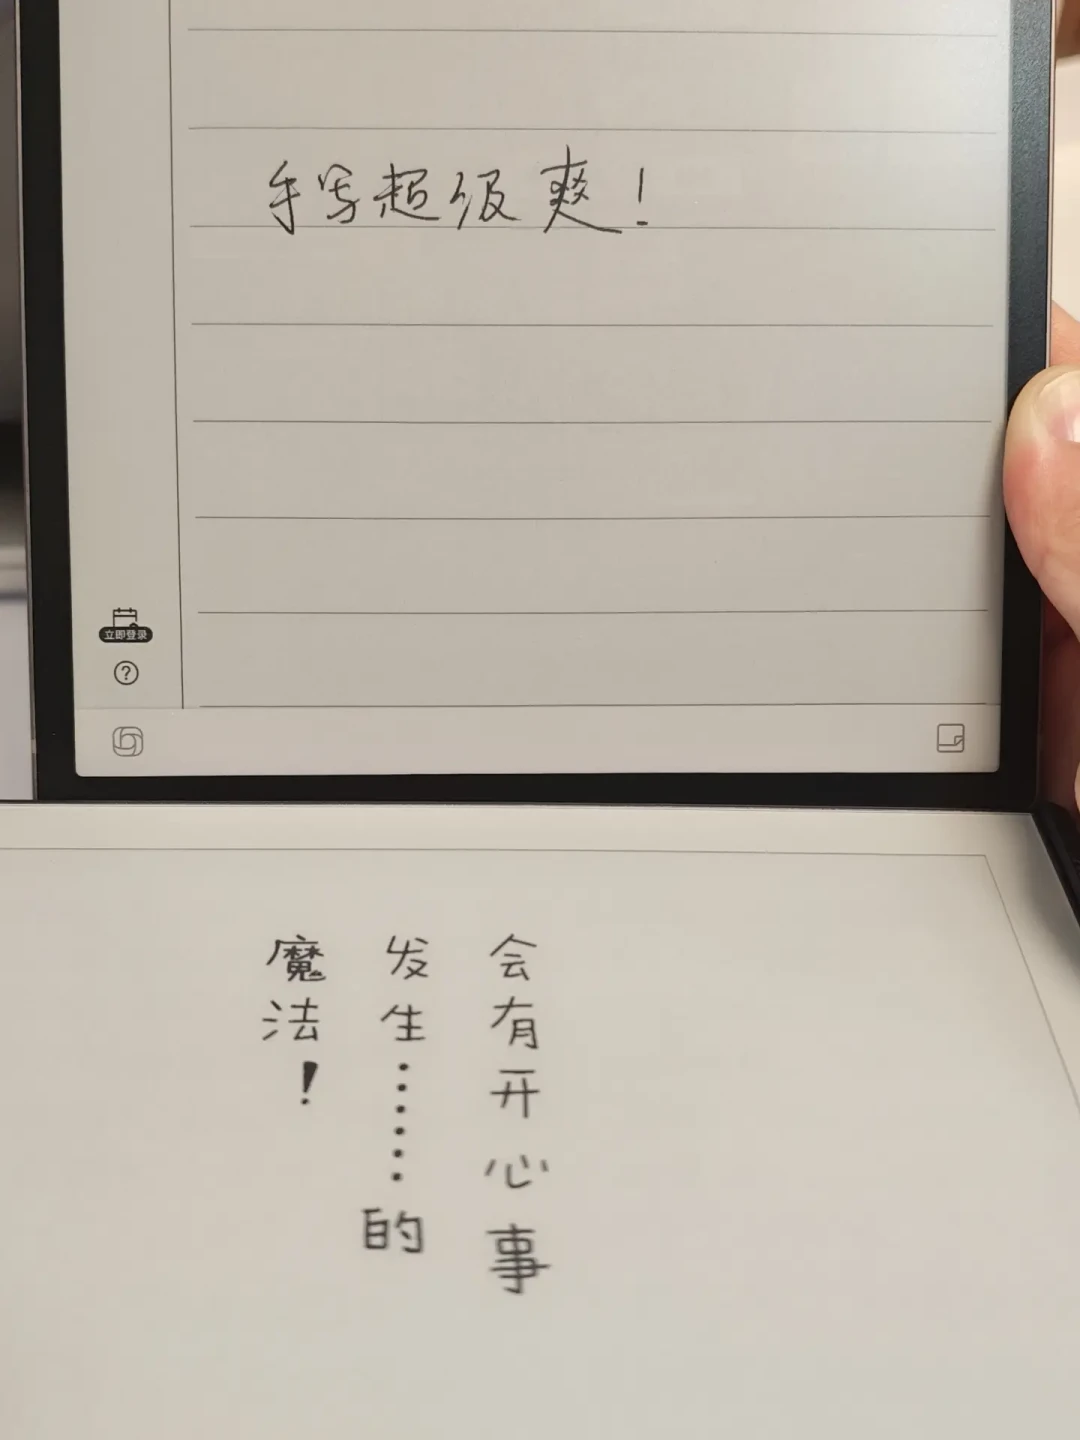 手写超级爽！
立即登录
会有开心事
发生……的
魔法！